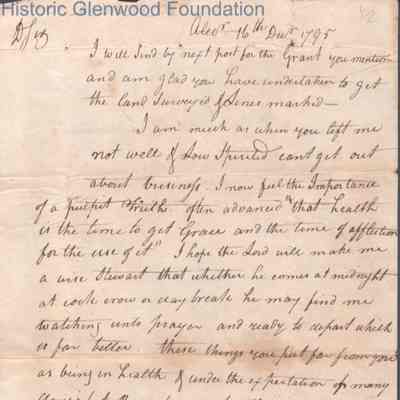 Historic Glenwood Foundation
Alexr 16th Decr 1795
D Sir
I will Send by next post for the Grant you mention
and am glad you have undertaken to get
the land Surveyed & Lines marked—
I am much as when you left me
not well & Low Spirited cant get out
about business. I now feel the Importance
of a pulpit Truth often advanced "that health
is the time to get Grace and the time of affliction
for the use of it" I hope the Lord will make me
a wise Stewart that whether he comes at midnight
at cock crow or day break he may find me
Watching unto prayer and ready to depart which
is far better these things you put far from you
as being in health & under the expectation of many